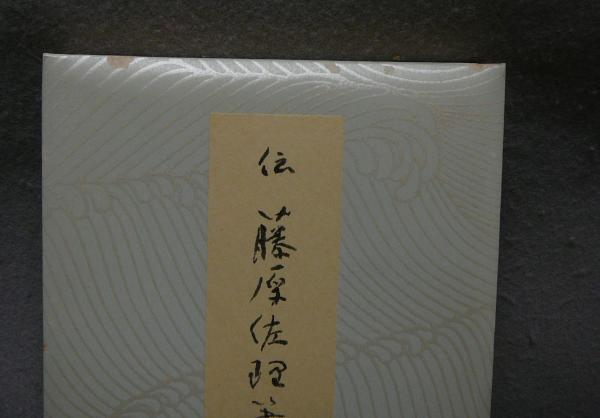 伝 藤原佐理筆